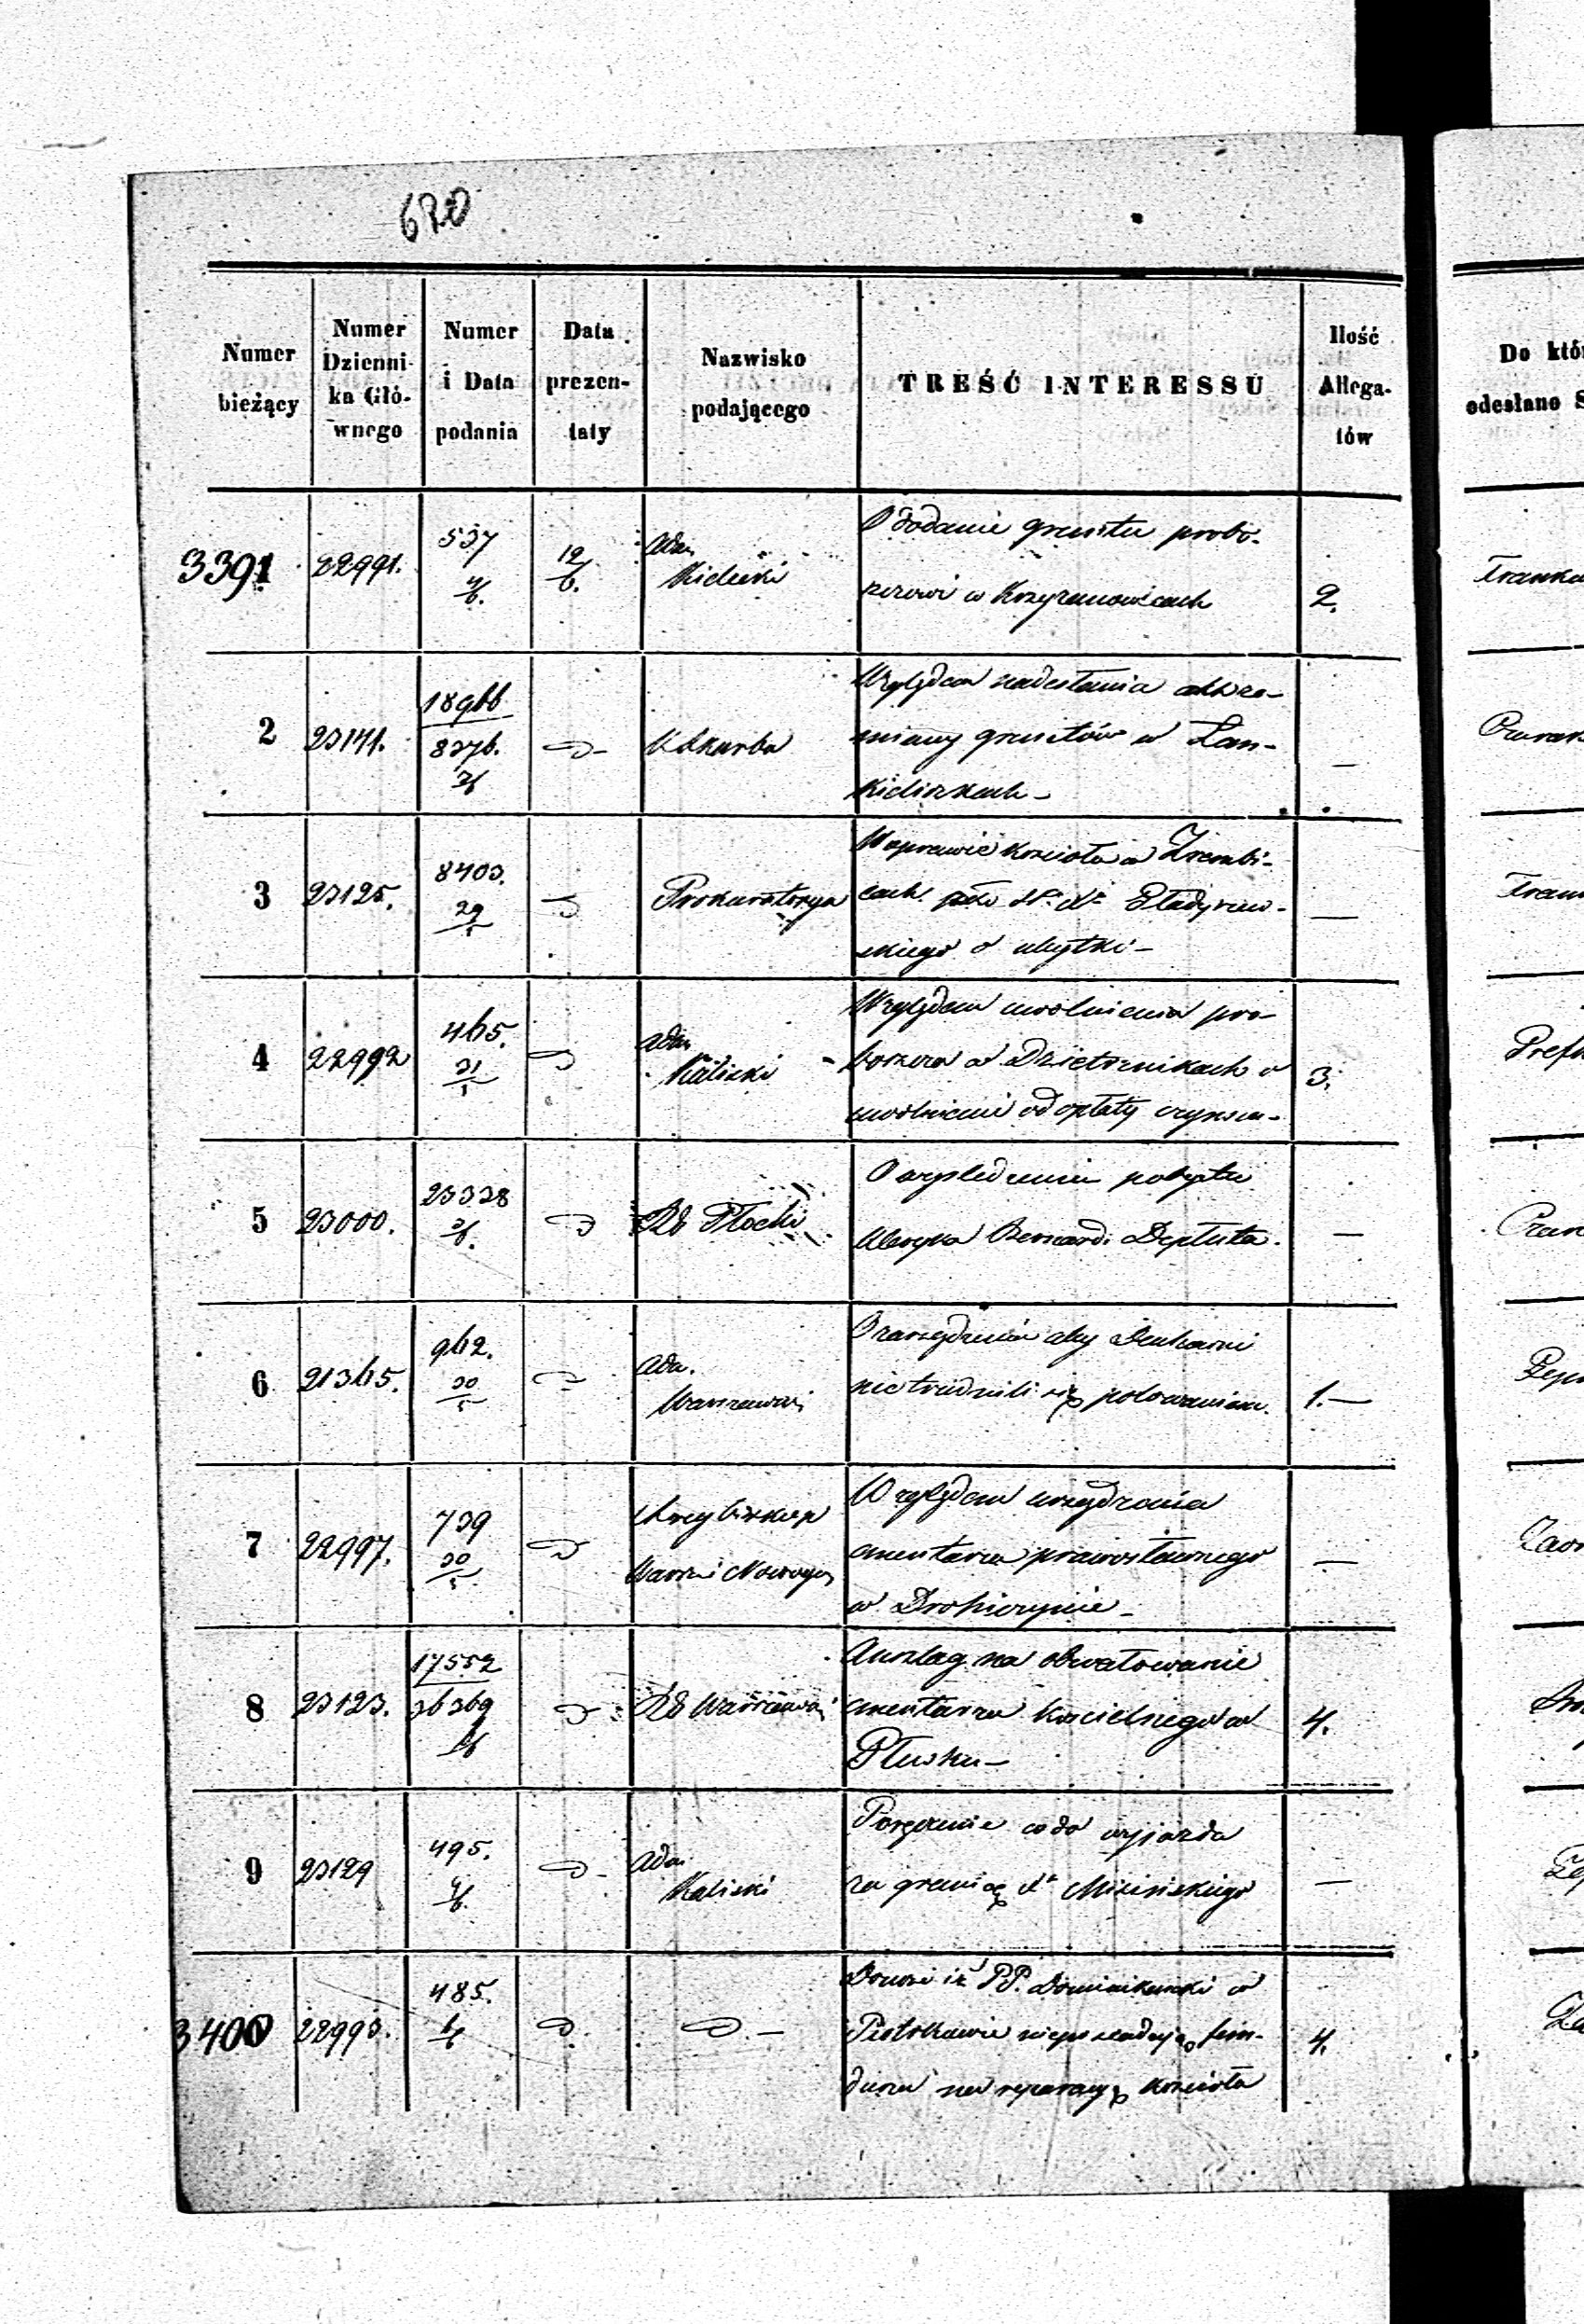 620
Numer bieżący
Numer Dzienni- ka Głó- wnego
Numer i Data podania
Data prezen- taty
Nazwisko podającego
TREŚĆ INTERESSU
Ilość Allega- tów
Do któr
odesłano S
3391 22991. 537 4/6. 12/6. Adm Kielecki
O dodanie gruntu probo-
szczowi w Krzyżanowicach 2.
2 23141. 18966 8376. — K Skarbu
Względem nadesłania
miany gruntów w Lan-
kieliszkach —
3 23125. 8403. 29/5 Prokuratorya
W sprawie kościoła w Zrembi-
cach
skiego o użytki —
4 22992 465. 31/5 Adm Kaliski
Względem uwolnienia pro-
boszcza w Dzietrznikach o
uwolnienie od opłaty czynszu 3.
5 23000. 23328 3/6. RG Płocki
O wyśledzenie pobytu
kleryka Bernard. Deptuła. —
6 21365. 962. 30/5 Adm. Warszawski
O zarządzenie aby
nie trudnili się polowaniem. 1. —
7 22997. 739 30/5 Arcybiskup
Warsz i Nowogeo
Względem urządzenia
cmentarza prawosławnego
w Drohiczynie — —
8 23123. 17552 36369 RG Warszawski
Anszlag na obwałowanie
cmentarza kościelnego w
Płusku — 4.
9 23129 495. 4/6. Adm. Kaliski
Poręczenie co do wyjazdu
za granicę Xa Micińskiego —
3400 22993. 485.
Donosi iż PP. Dominikanki w
Piotrkowie nieposiadają fun-
duszu na reparacyę kościoła 4.